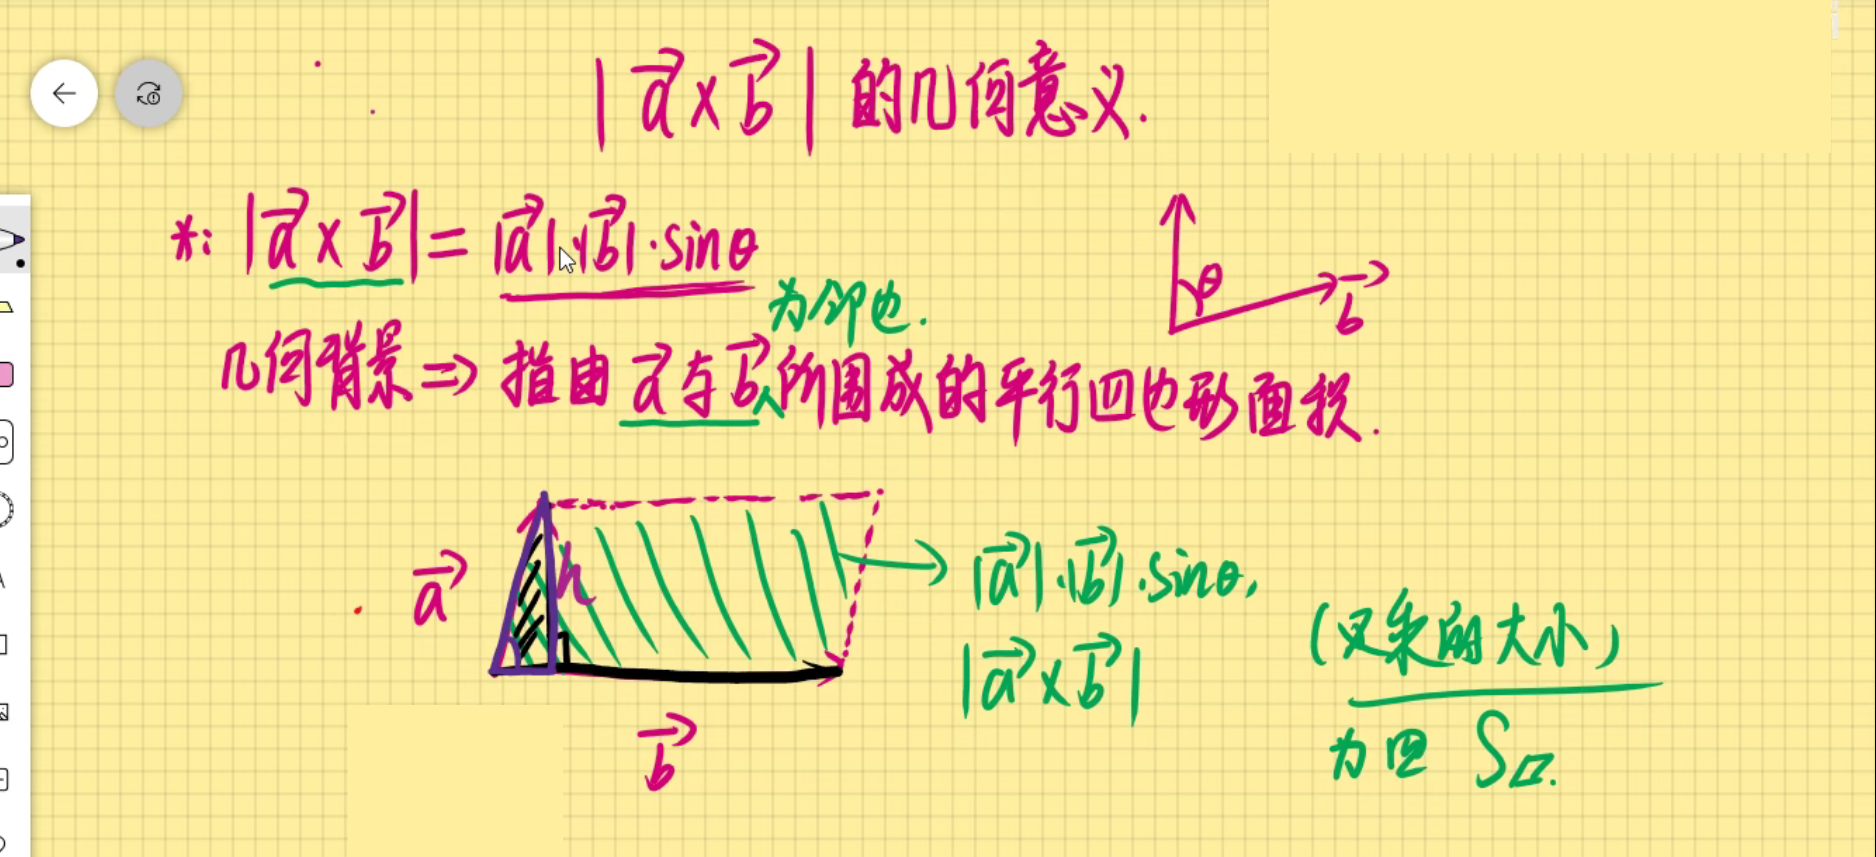 |a⃗×b⃗| 的几何意义.
*: |a⃗×b⃗| = |a⃗|·|b⃗|·sinθ
θ
b⃗
为邻边.
几何背景 ⇒ 指由 a⃗ 与 b⃗ 所围成的平行四边形面积.
a⃗
h
b⃗
|a⃗|·|b⃗|·sinθ,
|a⃗×b⃗|
(叉乘的大小)
为四 S▱.